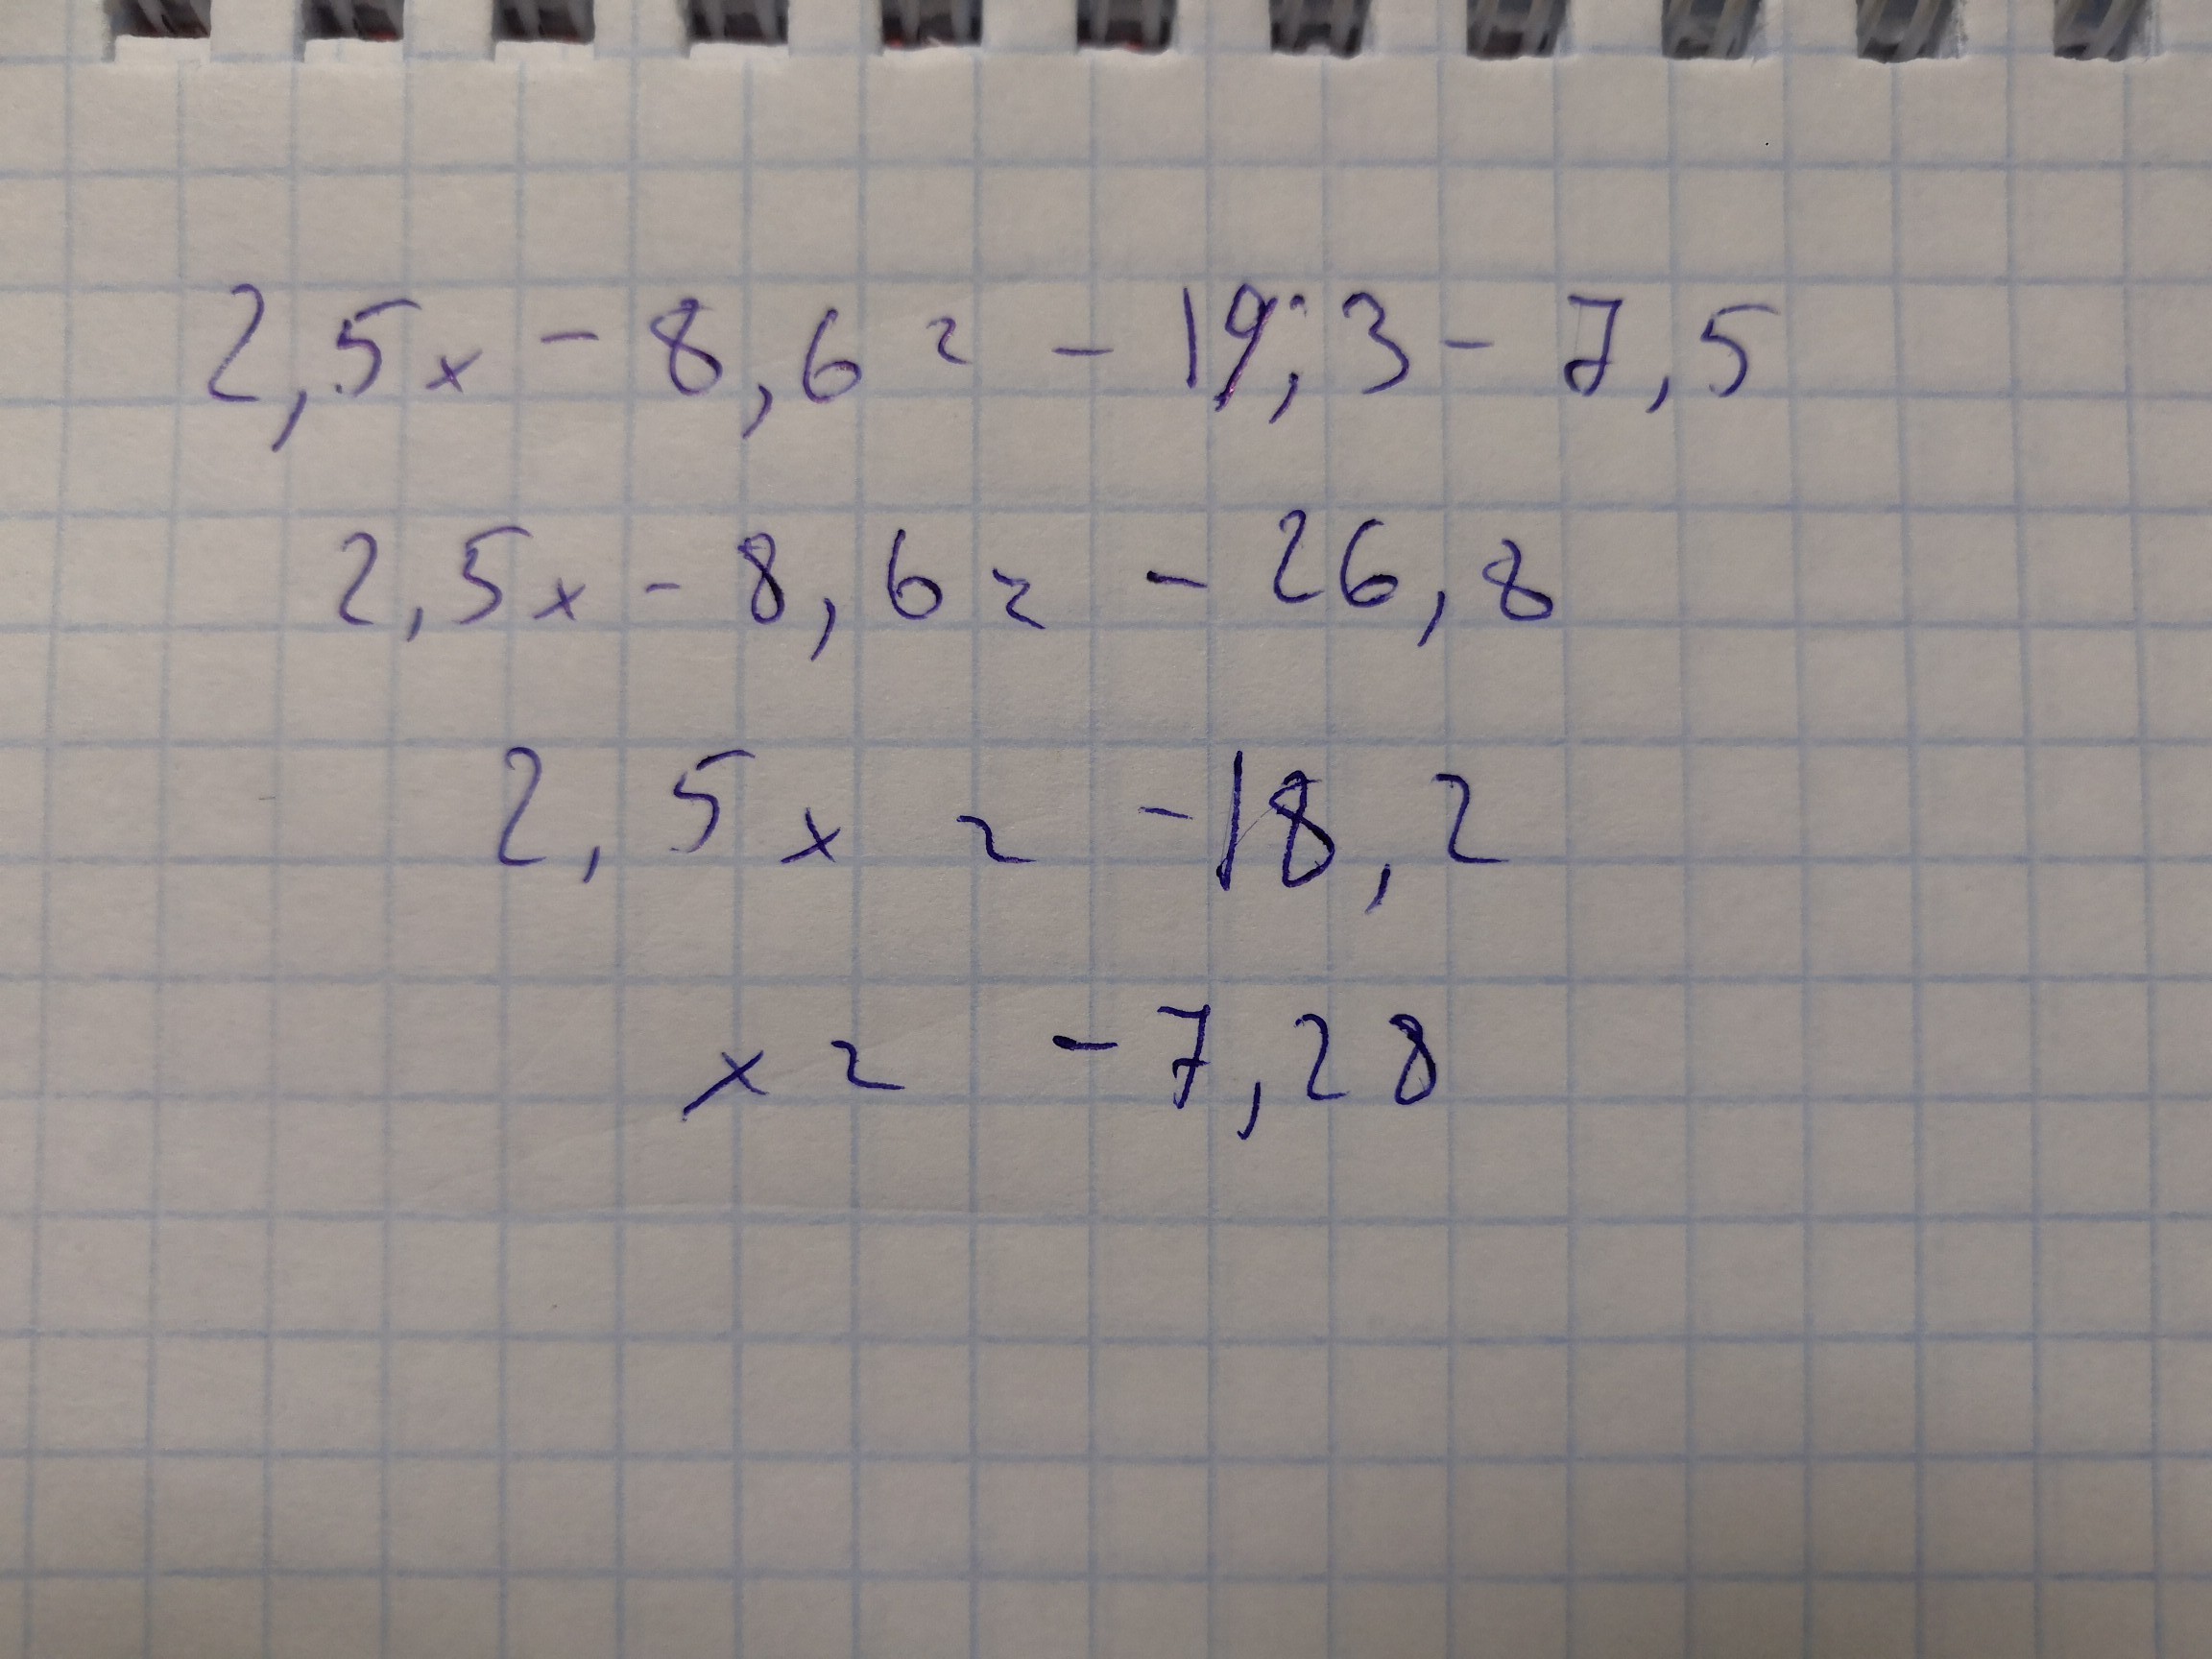 2,5x - 8,6 = - 19,3 - 7,5
2,5x - 8,6 = - 26,8
2,5x = -18,2
x = -7,28